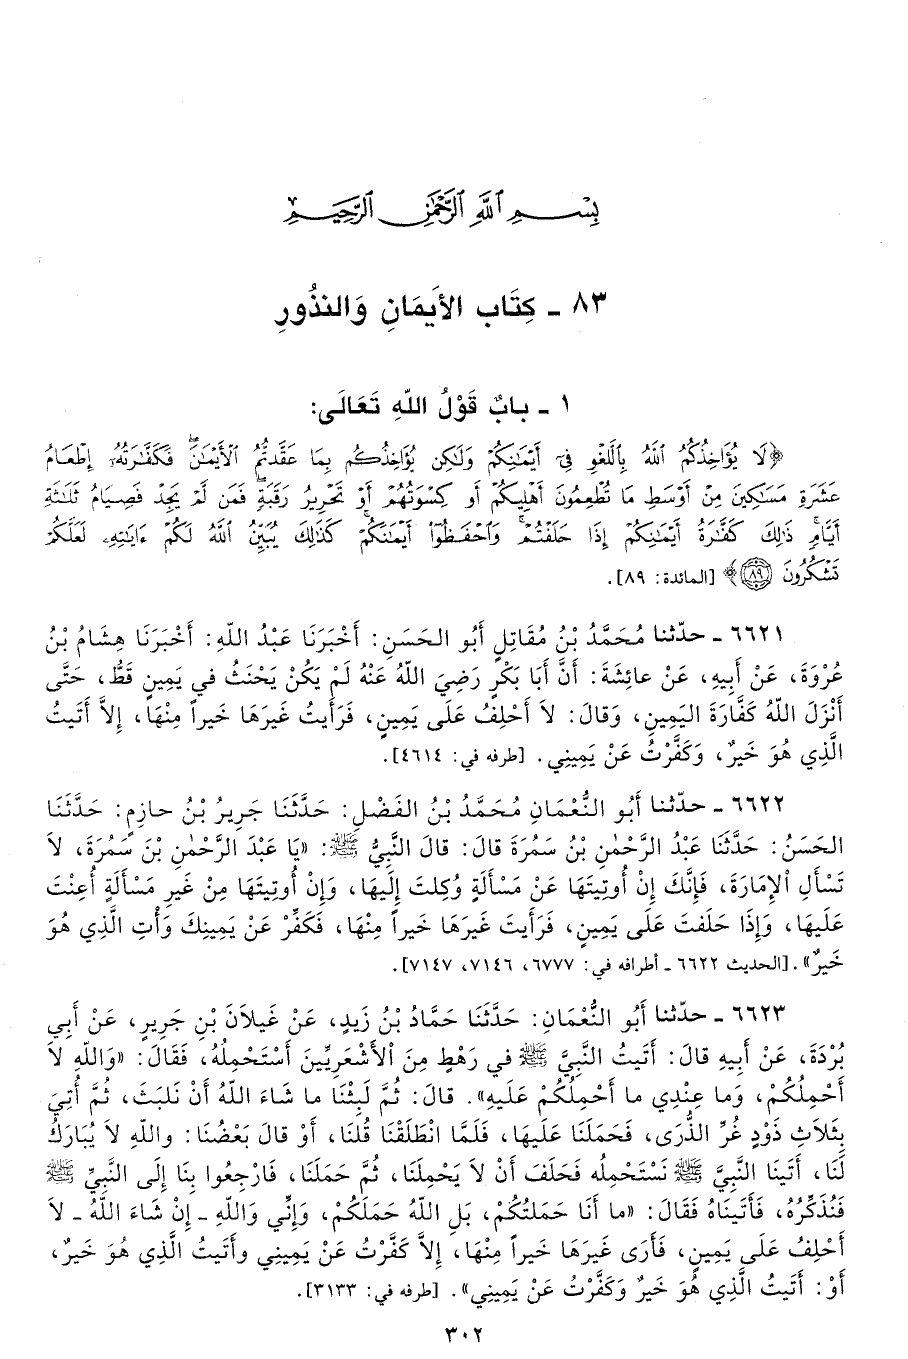 بِسْمِ اللَّهِ الرَّحْمَٰنِ الرَّحِيمِ
٨٣ ـ كِتَاب الأَيمَانِ وَالنذُورِ
١ ـ بابٌ قَوْلُ اللّهِ تَعَالَى:
﴿لَا يُؤَاخِذُكُمُ ٱللَّهُ بِٱللَّغْوِ فِىٓ أَيْمَٰنِكُمْ وَلَٰكِن يُؤَاخِذُكُم بِمَا عَقَّدتُّمُ ٱلْأَيْمَٰنَۖ فَكَفَّٰرَتُهُۥٓ إِطْعَامُ
عَشَرَةِ مَسَٰكِينَ مِنْ أَوْسَطِ مَا تُطْعِمُونَ أَهْلِيكُمْ أَوْ كِسْوَتُهُمْ أَوْ تَحْرِيرُ رَقَبَةٍۖ فَمَن لَّمْ يَجِدْ فَصِيَامُ ثَلَٰثَةِ
أَيَّامٍۚ ذَٰلِكَ كَفَّٰرَةُ أَيْمَٰنِكُمْ إِذَا حَلَفْتُمْۚ وَٱحْفَظُوٓا۟ أَيْمَٰنَكُمْۚ كَذَٰلِكَ يُبَيِّنُ ٱللَّهُ لَكُمْ ءَايَٰتِهِۦ لَعَلَّكُمْ
تَشْكُرُونَ ٨٩﴾ [المائدة: ٨٩].
٦٦٢١ ـ حدّثنا مُحَمَّدُ بْنُ مُقَاتِلٍ أَبُو الحَسَنِ: أَخْبَرَنَا عَبْدُ اللّهِ: أَخْبَرَنَا هِشَامُ بْنُ
عُرْوَةَ، عَنْ أَبِيهِ، عَنْ عائِشَةَ: أَنَّ أَبَا بَكْرٍ رَضِيَ اللّهُ عَنْهُ لَمْ يَكُنْ يَحْنَثُ في يَمِينٍ قَطُّ، حَتَّى
أَنْزَلَ اللّهُ كَفَّارَةَ اليَمِينِ، وَقالَ: لاَ أَحْلِفُ عَلَى يَمِينٍ، فَرَأَيتُ غَيرَهَا خَيراً مِنْهَا، إِلاَّ أَتَيتُ
الَّذِي هُوَ خَيرٌ، وَكَفَّرْتُ عَنْ يَمِينِي. [طرفه في: ٤٦١٤].
٦٦٢٢ ـ حدّثنا أَبُو النُّعْمَانِ مُحَمَّدُ بْنُ الفَضْلِ: حَدَّثَنَا جَرِيرُ بْنُ حازِمٍ: حَدَّثَنَا
الحَسَنُ: حَدَّثَنَا عَبْدُ الرَّحْمٰنِ بْنُ سَمُرَةَ قالَ: قالَ النَّبِيُّ ﷺ: «يَا عَبْدَ الرَّحْمٰنِ بْنَ سَمُرَةَ، لاَ
تَسْأَلِ الإِمَارَةَ، فَإِنَّكَ إِنْ أُوتِيتَهَا عَنْ مَسْأَلَةٍ وُكِلتَ إِلَيهَا، وَإِنْ أُوتِيتَهَا مِنْ غَيرِ مَسْأَلَةٍ أُعِنْتَ
عَلَيهَا، وَإِذَا حَلَفتَ عَلَى يَمِينٍ، فَرَأَيتَ غَيرَهَا خَيراً مِنْهَا، فَكَفِّرْ عَنْ يَمِينِكَ وَأْتِ الَّذِي هُوَ
خَيرٌ». [الحديث ٦٦٢٢ ـ أطرافه في: ٦٧٧٧، ٧١٤٦، ٧١٤٧].
٦٦٢٣ ـ حدّثنا أَبُو النُّعْمَانِ: حَدَّثَنَا حَمَّادُ بْنُ زَيدٍ، عَنْ غَيلاَنَ بْنِ جَرِيرٍ، عَنْ أَبِي
بُرْدَةَ، عَنْ أَبِيهِ قالَ: أَتَيتُ النَّبِيَّ ﷺ في رَهْطٍ مِنَ الأَشْعَرِيِّينَ أَسْتَحْمِلُهُ، فَقَالَ: «وَاللّهِ لاَ
أَحْمِلُكُمْ، وَما عِنْدِي ما أَحْمِلُكُمْ عَلَيهِ». قالَ: ثُمَّ لَبِثْنَا ما شَاءَ اللّهُ أَنْ نَلبَثَ، ثُمَّ أُتِيَ
بِثَلاَثِ ذَوْدٍ غُرِّ الذُّرَى، فَحَمَلَنَا عَلَيهَا، فَلَمَّا انْطَلَقْنَا قُلنَا، أَوْ قالَ بَعْضُنَا: واللّهِ لاَ يُبَارَكُ
لَنَا، أَتَينَا النَّبِيَّ ﷺ نَسْتَحْمِلُه فَحَلَفَ أَنْ لاَ يَحْمِلَنَا، ثُمَّ حَمَلَنَا، فَارْجِعُوا بِنَا إِلَى النَّبِيِّ ﷺ
فَنُذَكِّرُهُ، فَأَتَينَاهُ فَقَالَ: «ما أَنَا حَمَلتُكُمْ، بَلِ اللّهُ حَمَلَكُمْ، وَإِنِّي وَاللّهِ ـ إِنْ شَاءَ اللّهُ ـ لاَ
أَحْلِفُ عَلَى يَمِينٍ، فَأَرَى غَيرَهَا خَيراً مِنْهَا، إِلاَّ كَفَّرْتُ عَنْ يَمِينِي وأَتَيتُ الَّذِي هُوَ خَيرٌ،
أَوْ: أَتَيتُ الَّذِي هُوَ خَيرٌ وَكَفَّرْتُ عَنْ يَمِينِي». [طرفه في: ٣١٣٣].
٣٠٢